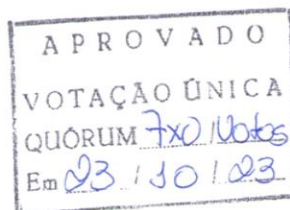 APROVADO
VOTAÇÃO ÚNICA
QUÓRUM 7x0 Votos
Em 23 / 10 / 23